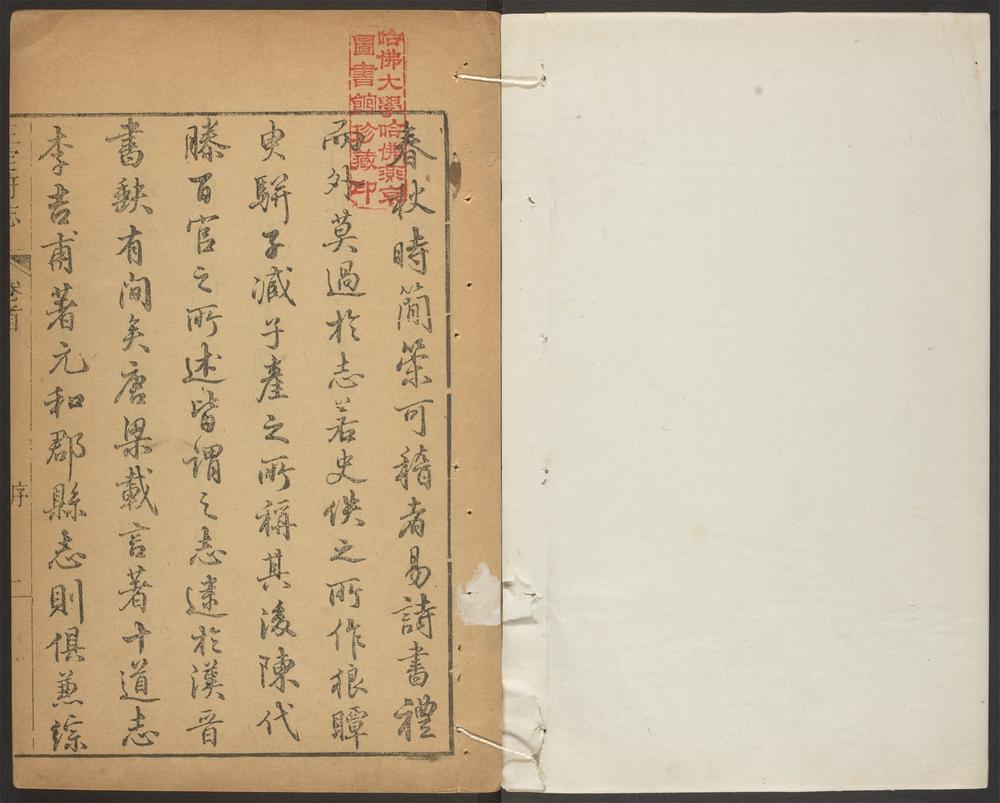 哈佛大學哈佛燕京
圖書館珍藏印
春秋時簡策可稽者易詩書禮
而外莫過於志若史佚之所作狼瞫
臾駢子臧子產之所稱其後陳代
滕百官之所述皆謂之志遠於漢晉
書缺有間矣唐梁載言著十道志
李吉甫著元和郡縣志則俱兼綜
府志
卷首
序
一